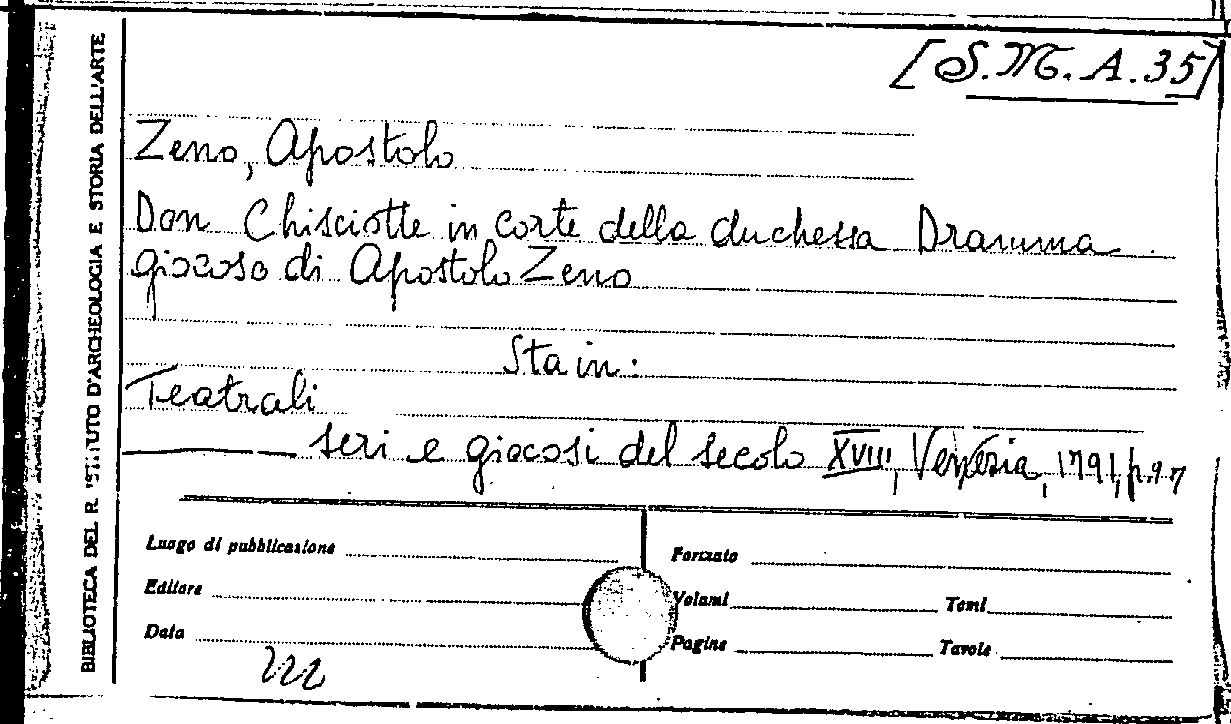 [S.M.A.35]
BIBLIOTECA DEL R. ISTITUTO D'ARCHEOLOGIA E STORIA DELL'ARTE
Zeno, Apostolo
Don Chisciotte in corte della duchessa Dramma
giocoso di Apostolo Zeno
Sta in:
Teatrali
seri e giocosi del secolo XVIII, Venezia, 1791, p. 97
Luogo di pubblicazione
Formato
Editore
Volumi Tomi
Data
Pagine Tavole